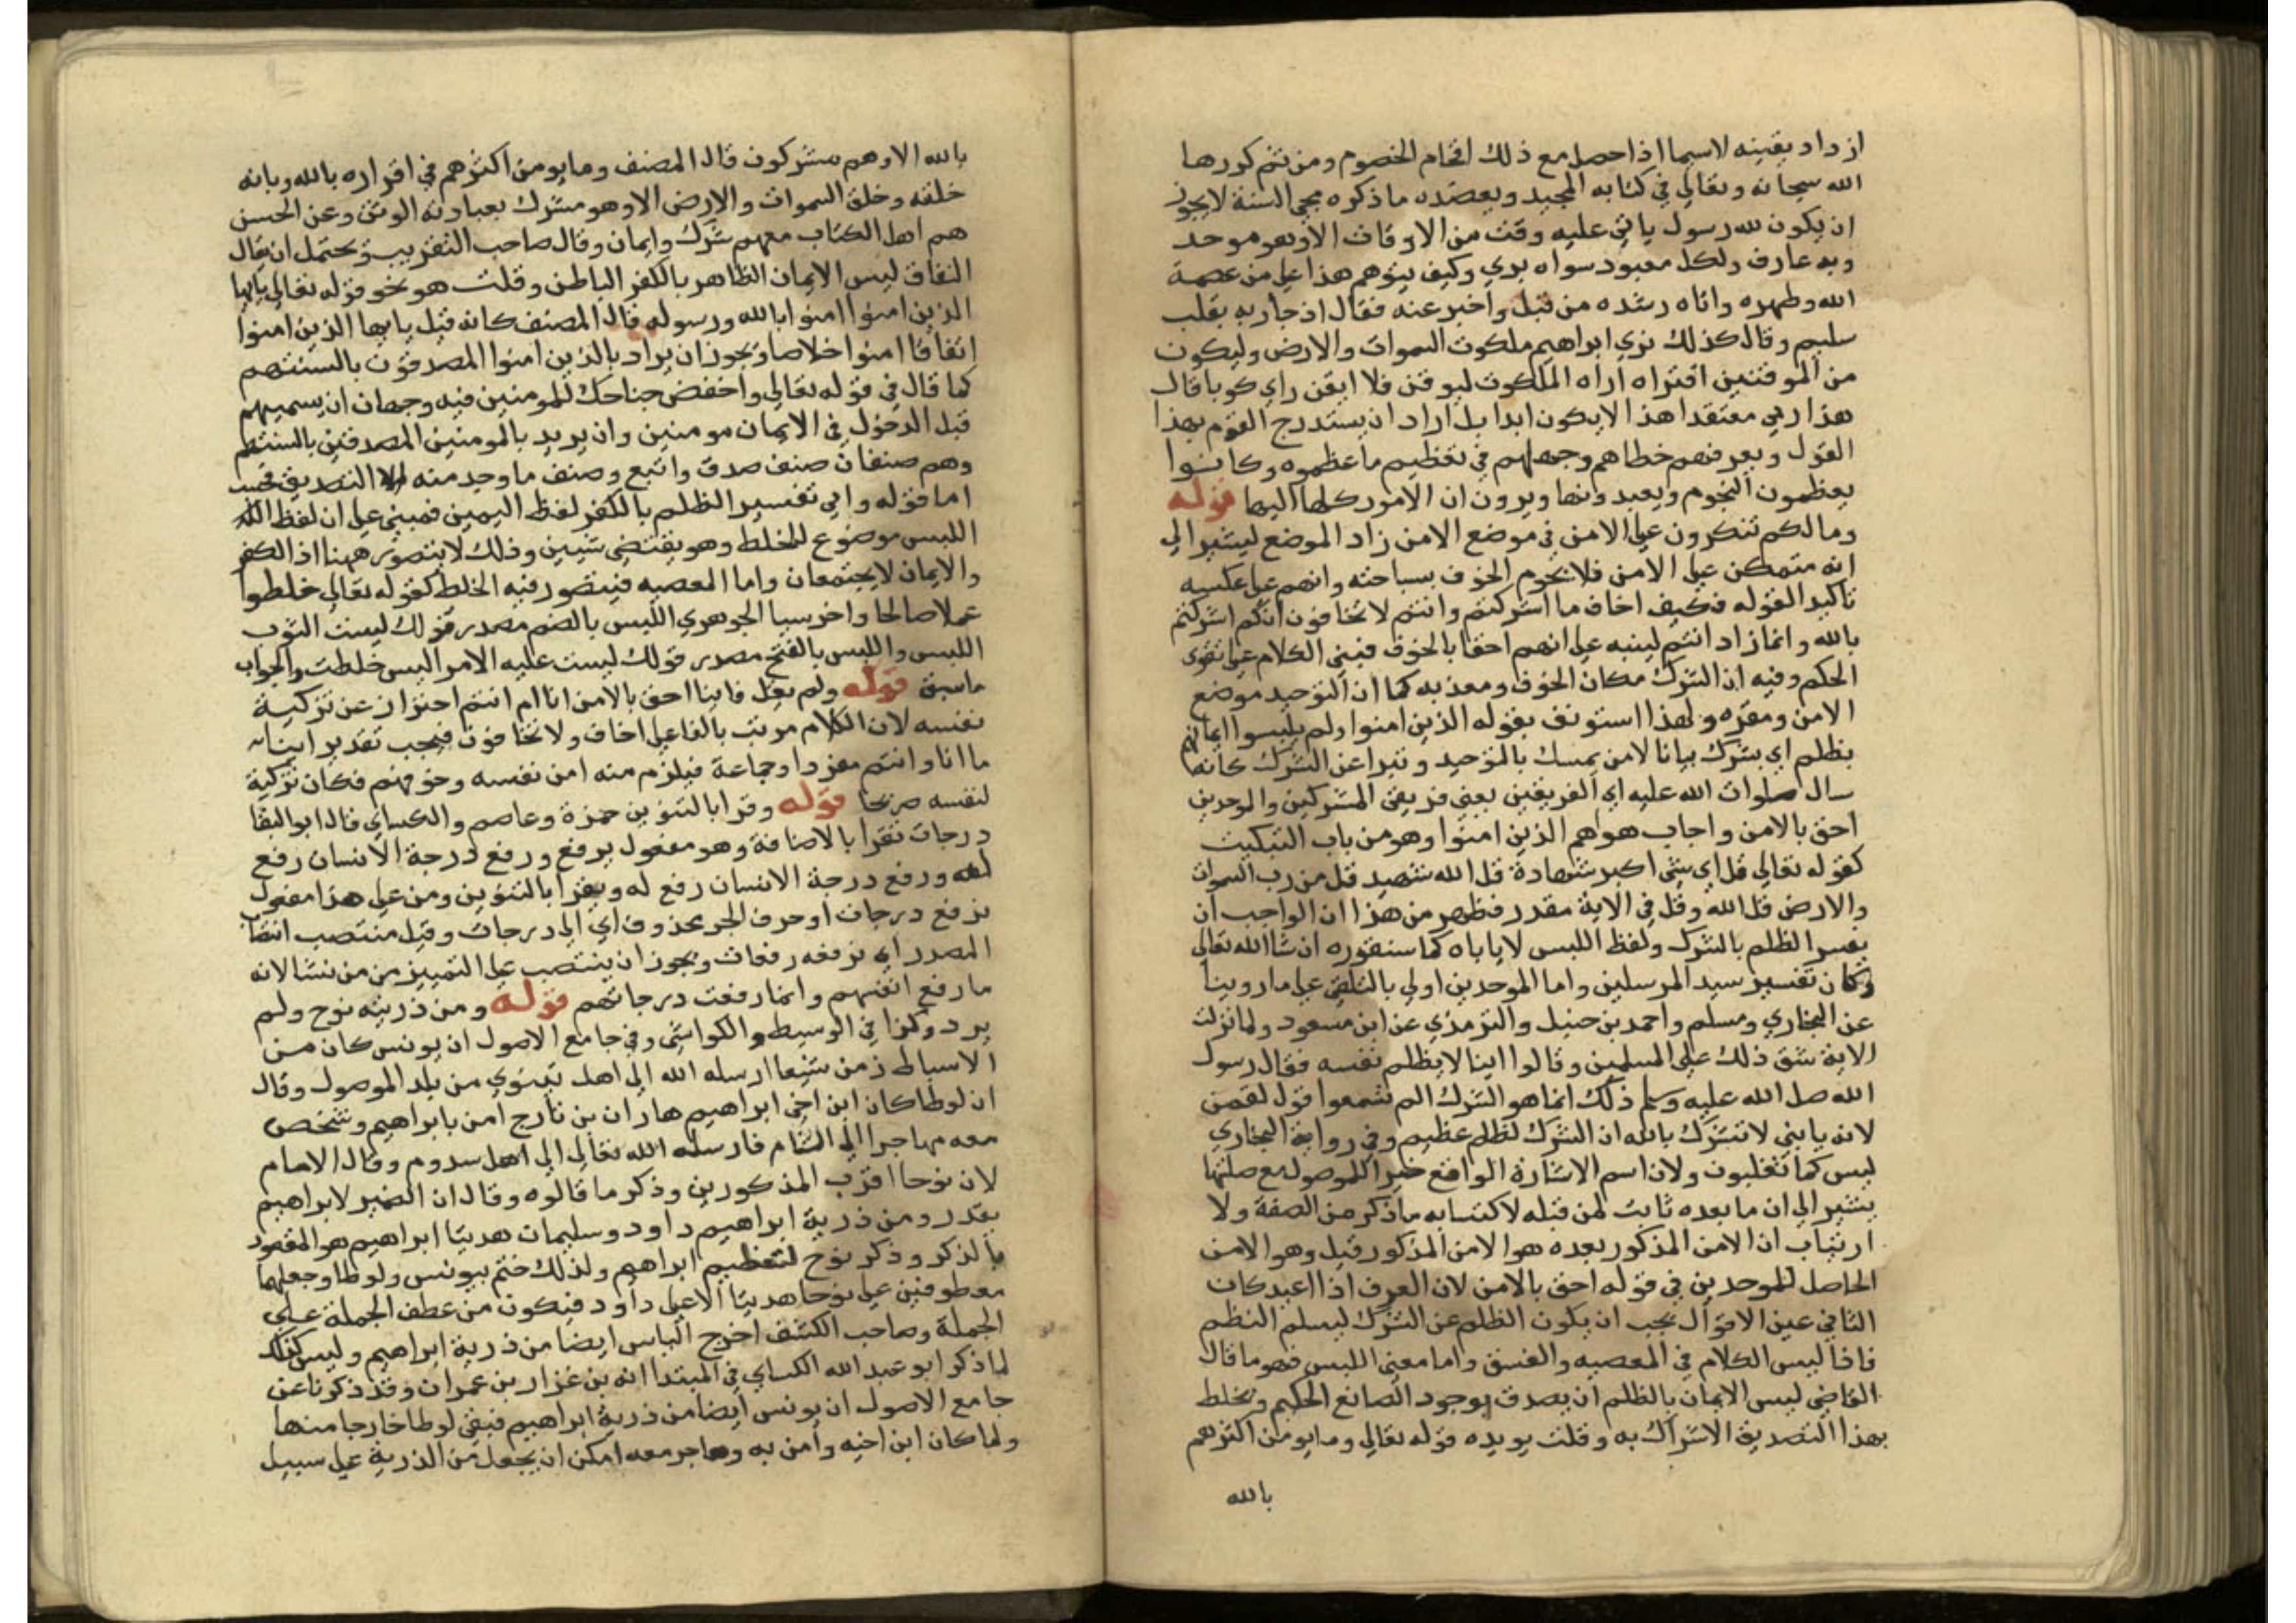 ازداد يقينه لاسيما اذا حصل مع ذلك افحام الخصوم ومن ثم كررها
الله سبحانه وتعالي في كتابه المجيد ويعضده ما ذكره محيي السنة لا يجوز
ان يكون لله رسول ياتي عليه وقت من الاوقات الا وهو موحد
وبه عارف ولكل معبود سواه بري وكيف يتوهم هذا علي من عصمة
الله وطهره واتاه رشده من قبل واخبر عنه فقال اذ جا ربه بقلب
سليم وقال كذلك نري ابراهيم ملكوت السموات والارض وليكون
من الموقنين افتراه اراه الملكوت ليوقن فلا ايقن راي كوبا قال
هذا ربي معتقدا هذا لا يكون ابدا بل اراد ان يستدرج القوم بهذا
القول ويعرفهم خطاهم وجهلهم في تعظيم ما عظموه وكانوا
يعظمون النجوم ويعبدونها ويرون ان الامور كلها اليها قوله
وما لكم تنكرون علي الامن في موضع الامن زاد الموضع ليشير الي
انه متمكن علي الامن فلا يحوم الخوف بساحته وانهم علي عكسه
تاكيدا لقوله فكيف اخاف ما اشركتم وانتم لا تخافون انكم اشركتم
بالله وانما زاد انتم لينبه علي انهم احقا بالخوف فبني الكلام علي تقوي
الحكم وفيه ان الشرك مكان الخوف ومعدنه كما ان التوحيد موضع
الامن ومقره ولهذا استونف بقوله الذين امنوا ولم يلبسوا ايمانهم
بظلم اي بشرك بيانا لامن يمسك بالتوحيد وتبرا عن الشرك كانه
سال صلوات الله عليه اي الفريقين يعني فريقي المشركين والموحدين
احق بالامن واجاب هو هم الذين امنوا وهو من باب التبكيت
كقوله تعالي قل اي شي اكبر شهادة قل الله شهيد قل من رب السموات
والارض قل الله وقل في الاية مقدر فظهر من هذا ان الواجب ان
يفسر الظلم بالشرك ولفظ اللبس لا ياباه كما سنقرره ان شا الله تعالي
وكان تفسير سيد المرسلين واما الموحدين اولي بالتلقي علي ما روينا
عن البخاري ومسلم واحمد بن حنبل والترمذي عن ابن مسعود ولما نزلت
الاية شق ذلك علي المسلمين وقالوا اينا لا يظلم نفسه فقال رسول
الله صل الله عليه وسلم ذلك انما هو الشرك الم تسمعوا قول لقمن
لابنه يا بني لا تشرك بالله ان الشرك لظلم عظيم وفي رواية البخاري
ليس كما تظنون ولان اسم الاشارة الواقع خبرا للموصول مع صلتها
يشير الي ان ما بعده ثابت لمن قبله لاكتسابه ما ذكر من الصفة ولا
ارتياب ان الامن المذكور بعده هو الامن المذكور قبل وهو الامن
الحاصل للموحدين في قوله احق بالامن لان العرف اذا اعيد كان
الثاني عين الاول يجب ان يكون الظلم عن الشرك ليسلم النظم
فاذا ليس الكلام في المعصيه والفسق واما معني اللبس فهو ما قال
القاضي لبس الايمان بالظلم ان يصدق بوجود الصانع الحكيم ويخلط
بهذا التصديق الاشراك به وقلت يويده قوله تعالي وما يومن اكثرهم
بالله
بالله الا وهم مشركون قال المصنف وما يومن اكثرهم في اقراره بالله وبانه
خلقه وخلق السموات والارض الا وهو مشرك بعبادته الوثن وعن الحسن
هم اهل الكتاب معهم شرك وايمان وقال صاحب التقريب وتحتمل ان يقال
النفاق لبس الايمان الظاهر بالكفر الباطن وقلت هو نحو قوله تعالي يا ايها
الذين امنوا امنوا بالله ورسوله قال المصنف كانه قيل يا يها الذين امنوا
اتفاقا امنوا اخلاصا ويجوز ان يراد بالذين امنوا المصدقون بالسنتهم
كما قال في قوله تعالي واخفض جناحك للمومنين فيه وجهان ان يسميهم
قبل الدخول في الايمان مومنين وان يريد بالمومنين المصدقين بالسنتهم
وهم صنفان صنف صدق واتبع وصنف ما وجد منه الا التصديق فحسب
اما قوله وابي تفسير الظلم بالكفر لفظ اليمين فمبني علي ان لفظ
اللبس موضوع للخلط وهو يقتضي شيين وذلك لا يتصور ههنا اذ الكفر
والايمان لا يجتمعان واما المعصيه فيتصور فيه الخلط كقوله تعالي خلطوا
عملا صالحا واخر سيا الجوهري اللبس بالضم مصدر قولك لبست الثوب
اللبس واللبس بالفتح مصدر قولك لبست عليه الامر البس خلطت والجواب
ما سبق قوله ولم يقل فاينا احق بالامن انا ام انتم احترازا عن تزكية
نفسه لان الكلام مرتب بالفا علي اخاف ولا تخافون فيجب تقدير اينا
ما انا وانتم مفردا وجماعة فيلزم منه امن نفسه وخوفهم فكان تزكية
لنفسه صريحا قوله وقرا بالتنوين حمزة وعاصم والكساي قال ابو البقا
درجات تقرا بالاضافة وهو مفعول يرفع ورفع درجة الانسان رفع
له ورفع درجة الانسان رفع له ويقرا بالتنوين ومن علي هذا مفعول
نرفع درجات او حرف الجر محذوف اي الي درجات وقيل منتصب انتصاب
المصدر اي نرفعه رفعات ويجوز ان ينتصب علي التمييز من من نشا لانه
ما رفع انفسهم وانما رفعت درجاتهم قوله ومن ذريته نوح ولم
يرد وكذا في الوسيط والكواشي وفي جامع الاصول ان يونس كان من
الاسباط زمن شعيا ارسله الله الي اهل نينوي من بلد الموصول وقال
ان لوطا كان ابن اخي ابراهيم هاران بن تارح امن بابراهيم وشخص
معه مهاجرا الي الشام فارسله الله تعالي الي اهل سدوم وقال الامام
لان نوحا اقرب المذكورين وذكر ما قالوه وقال ان الضمير لابراهيم
يقدر ومن ذرية ابراهيم داود وسليمان هدينا ابراهيم هو المقصود
بالذكر وذكر نوح لتعظيم ابراهيم ولذلك ختم بيونس ولوطا وجعلهما
معطوفين علي نوحا هدينا لا علي داود فيكون من عطف الجملة علي
الجملة وصاحب الكشف اخرج الياس ايضا من ذرية ابراهيم وليس كذلك
لما ذكر ابو عبد الله الكساي في المبتدا انه بن عزار بن عمران وقد ذكرنا عن
جامع الاصول ان يونس ايضا من ذرية ابراهيم فبقي لوطا خارجا منها
ولما كان ابن اخيه وامن به وهاجر معه امكن ان يجعل من الذرية علي سبيل